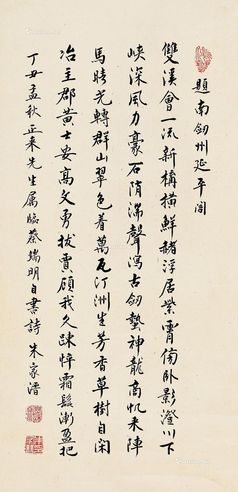 題南劒州延平閣
雙溪會一流新構橫鮮赭浮居紫霄傍卧影澄川下
峽深風力豪石隋湍聲瀉古劒蟄神龍商帆來陣
馬晴光轉群山翠色着萬瓦汀洲生芳香草樹自閑
冶主郡黃士安高文勇拔賈顧我久踈悴霜髭漸盈把
丁丑孟秋正來先生屬臨蔡端明自書詩 朱家溍